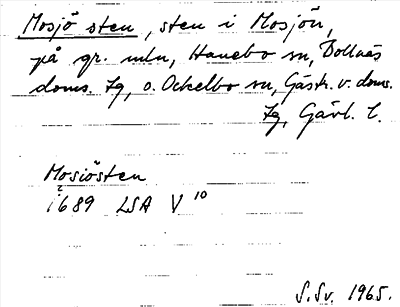 Mosjö sten, sten i Mosjön,
på gr. mln, Hanebo sn, Bollnäs
doms. tg, o. Ockelbo sn, Gästr. v. doms.
tg, Gävl. l.
Mosiösten
1689 LSA V 10
S. Sv. 1965.